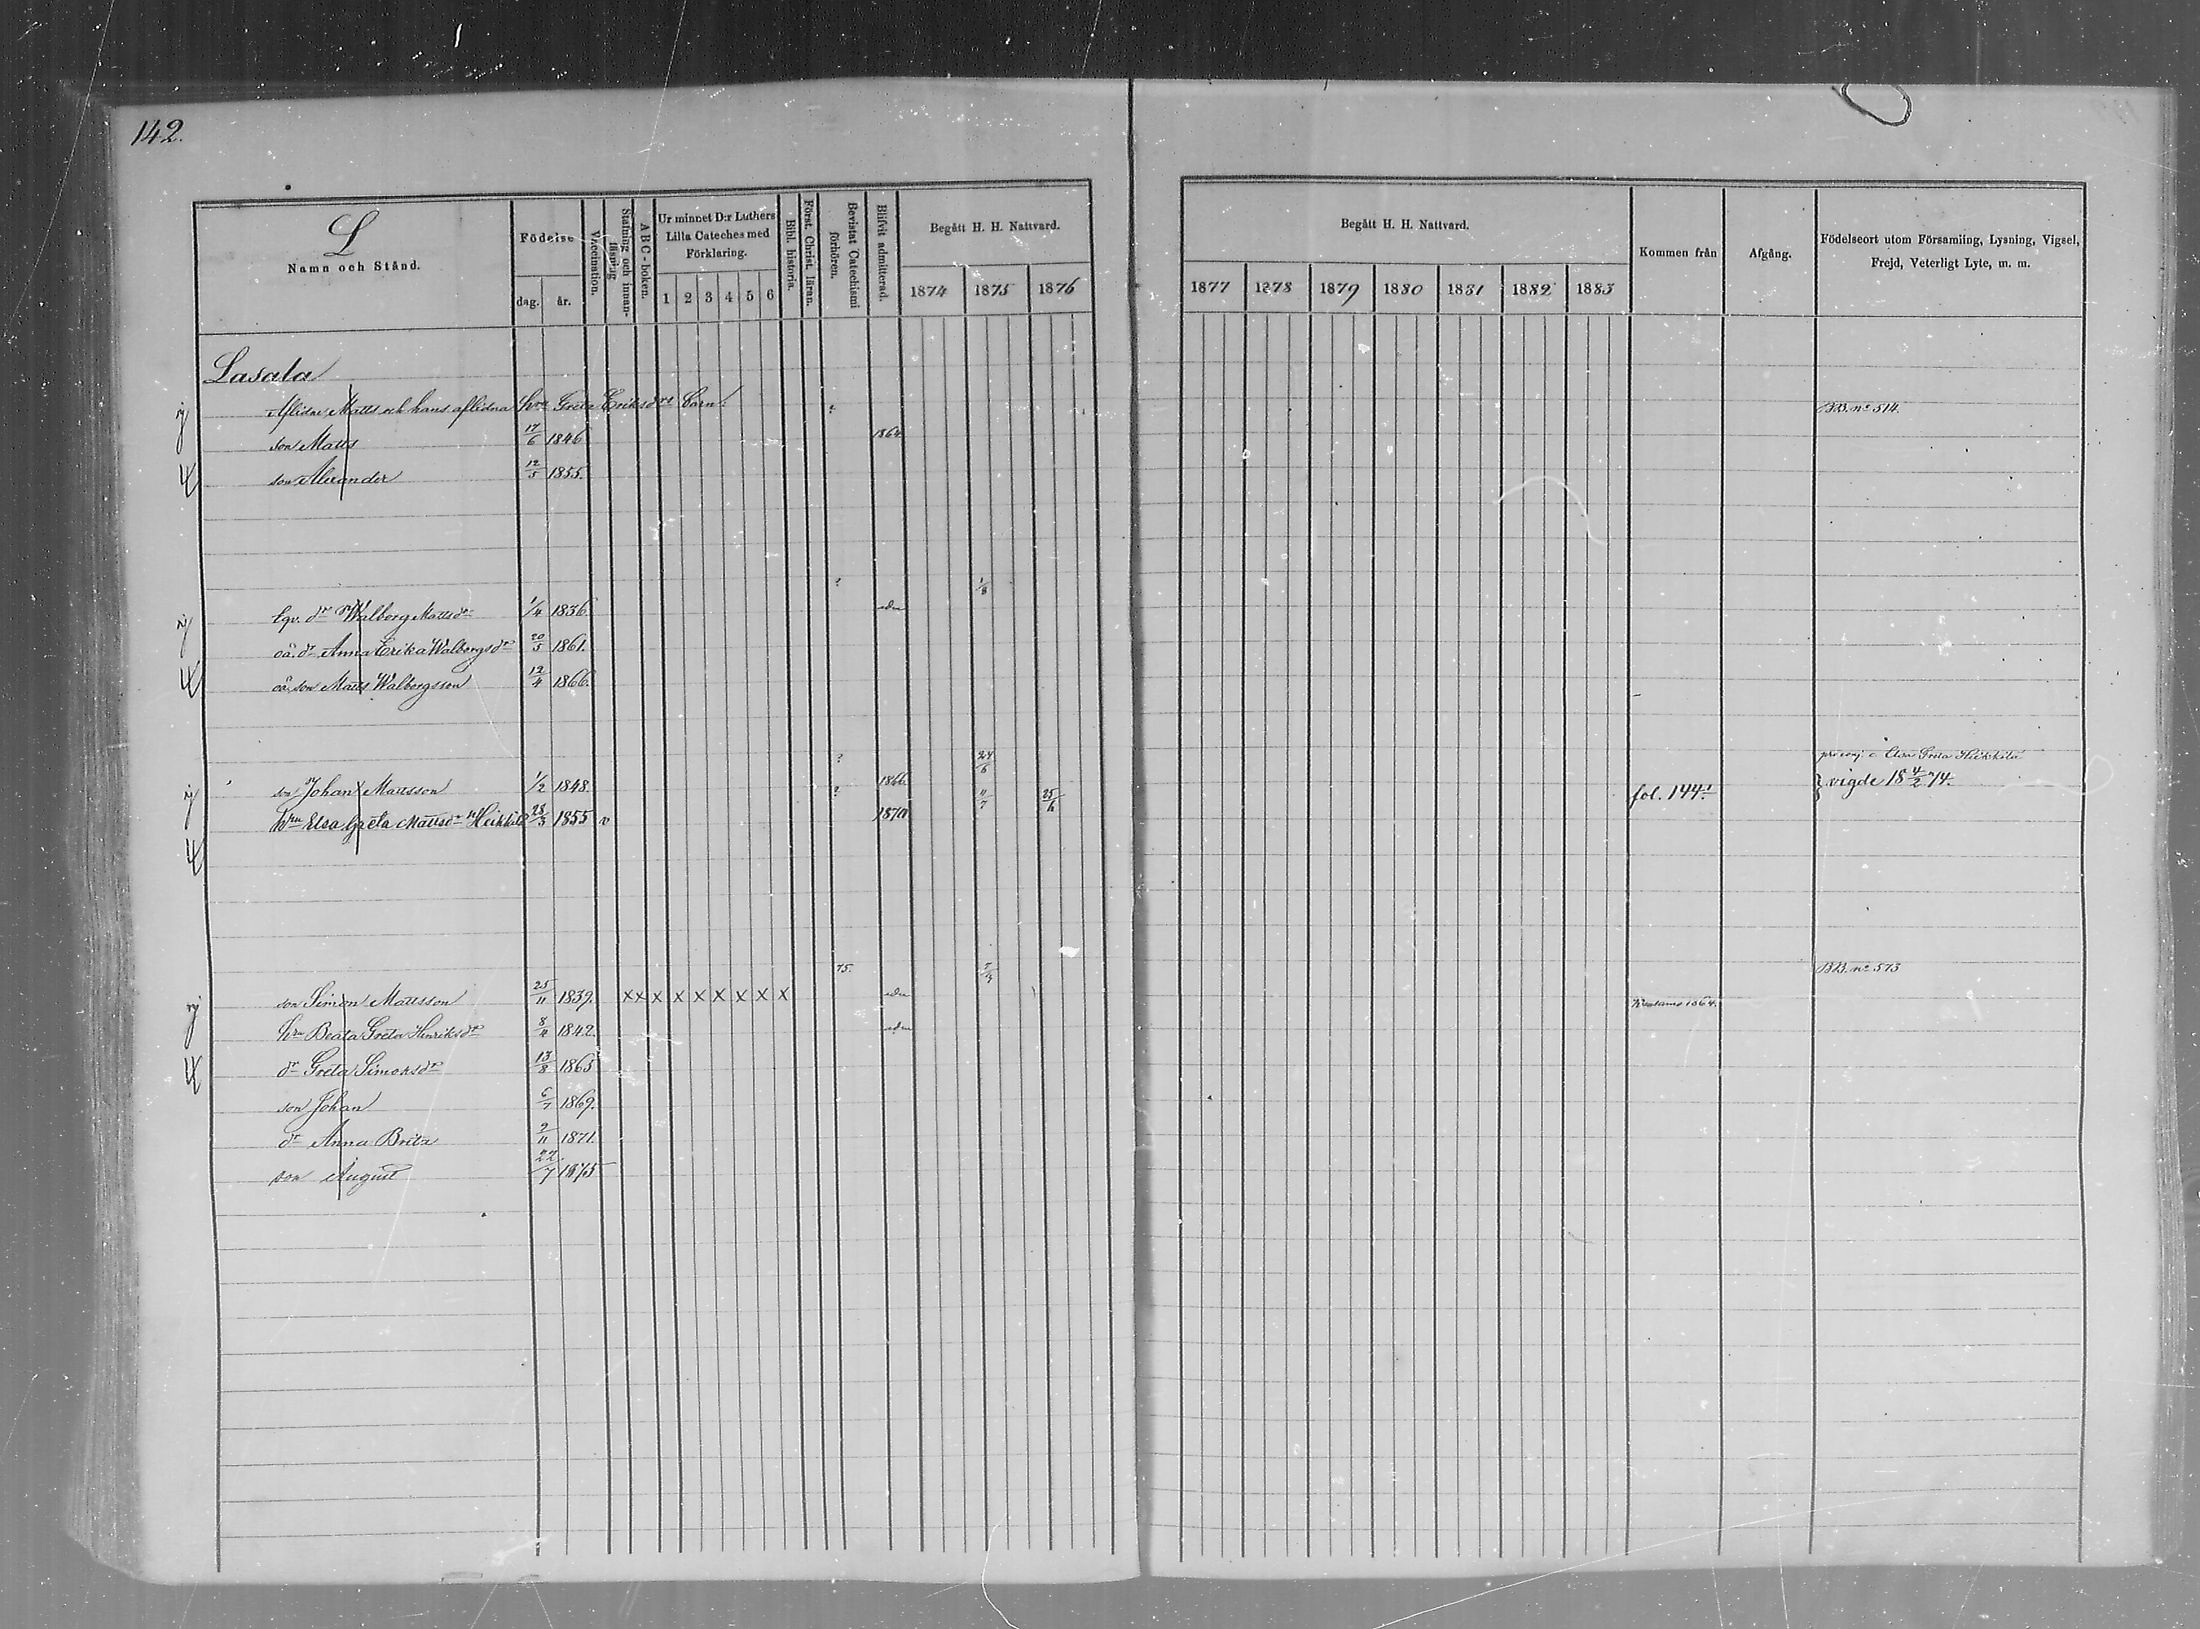 142.
L
Namn och Stånd.
Födelse
dag.
år.
Vaccination.
Stafning och innan-läsning
A B C - boken.
Ur minnet D:r Luthers Lilla Cateches med Förklaring.
1 2 3 4 5 6
Bibl. historia.
Först. Christ. läran.
Bevistat Catechismi förhören.
Blifvit admitterad.
Begått H. H. Nattvard.
1874 1875 1876
Begått H. H. Nattvard.
1877 1878 1879 1880 1881 1882 1883
Kommen från
Afgång.
Födelseort utom Församling, Lysning, Vigsel, Frejd, Veterligt Lyte, m. m.
Lasala
Aflidne Matts och hans aflidna hru Greta Eriksdrs barn: ? BB. no 514.
son Matts 17/6 1846 1864
son Alexander 12/5 1855.
? 1/8
lgv. dr Walborg Mattsdr 1/4 1836.
oä. dr Anna Erika Walborgsdr 20/5 1861.
oä. son Matts Walborgsson 12/4 1866.
? 24/6 Elsa Greta Heikkilä
son Johan Mattsson 1/2 1848. ? 1866. 11/7 25/6 fol. 144. } vigde 18 4/2 74.
hru Elsa Greta Mattsdr Heikkilä 28/3 1855 v 1870
75. BB. no 573
son Simon Mattsson 25/11 1839. x x x x x x x x x 1864.
hru Beata Greta Henriksdr 8/4 1842.
dr Greta Simonsdr 13/8 1865
son Johan 6/7 1869.
dr Anna Brita 9/11 1871.
son August 22/7 1875